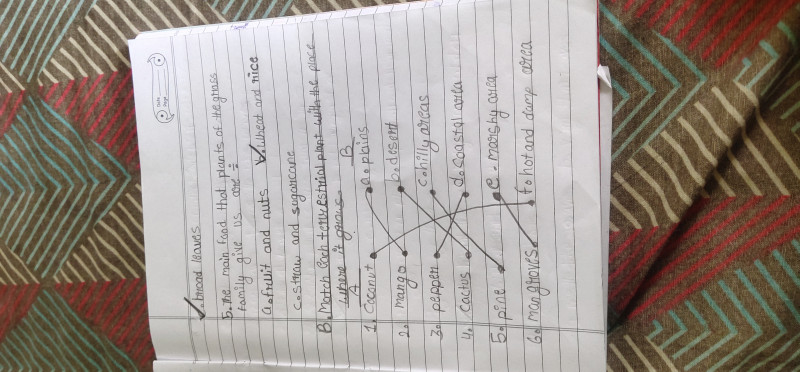 broad leaves
5. The main food that plants of the grass
family give us are :-
a. fruit and nuts ✓ wheat and rice
c. straw and sugarcane
B. Match each terrestrial plant with the place
where it grows.
A B
1. Coconut a. plains
2. mango b. desert
3. pepper c. hilly areas
4. cactus d. coastal area
5. pine e. marshy area
6. mangroves f. hot and damp area